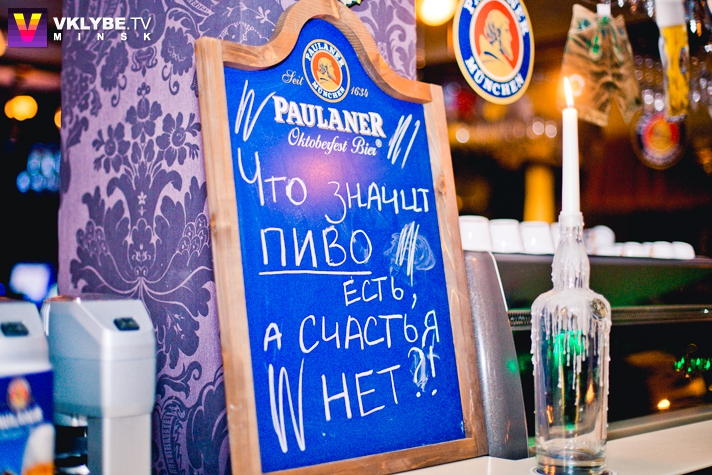 VKLYBE.TV
MINSK
PAULANER
MÜNCHEN
Seit 1634
PAULANER
Oktoberfest Bier
Что значит
ПИВО
есть,
а счастья
нет?!
PAULANER
MÜNCHEN